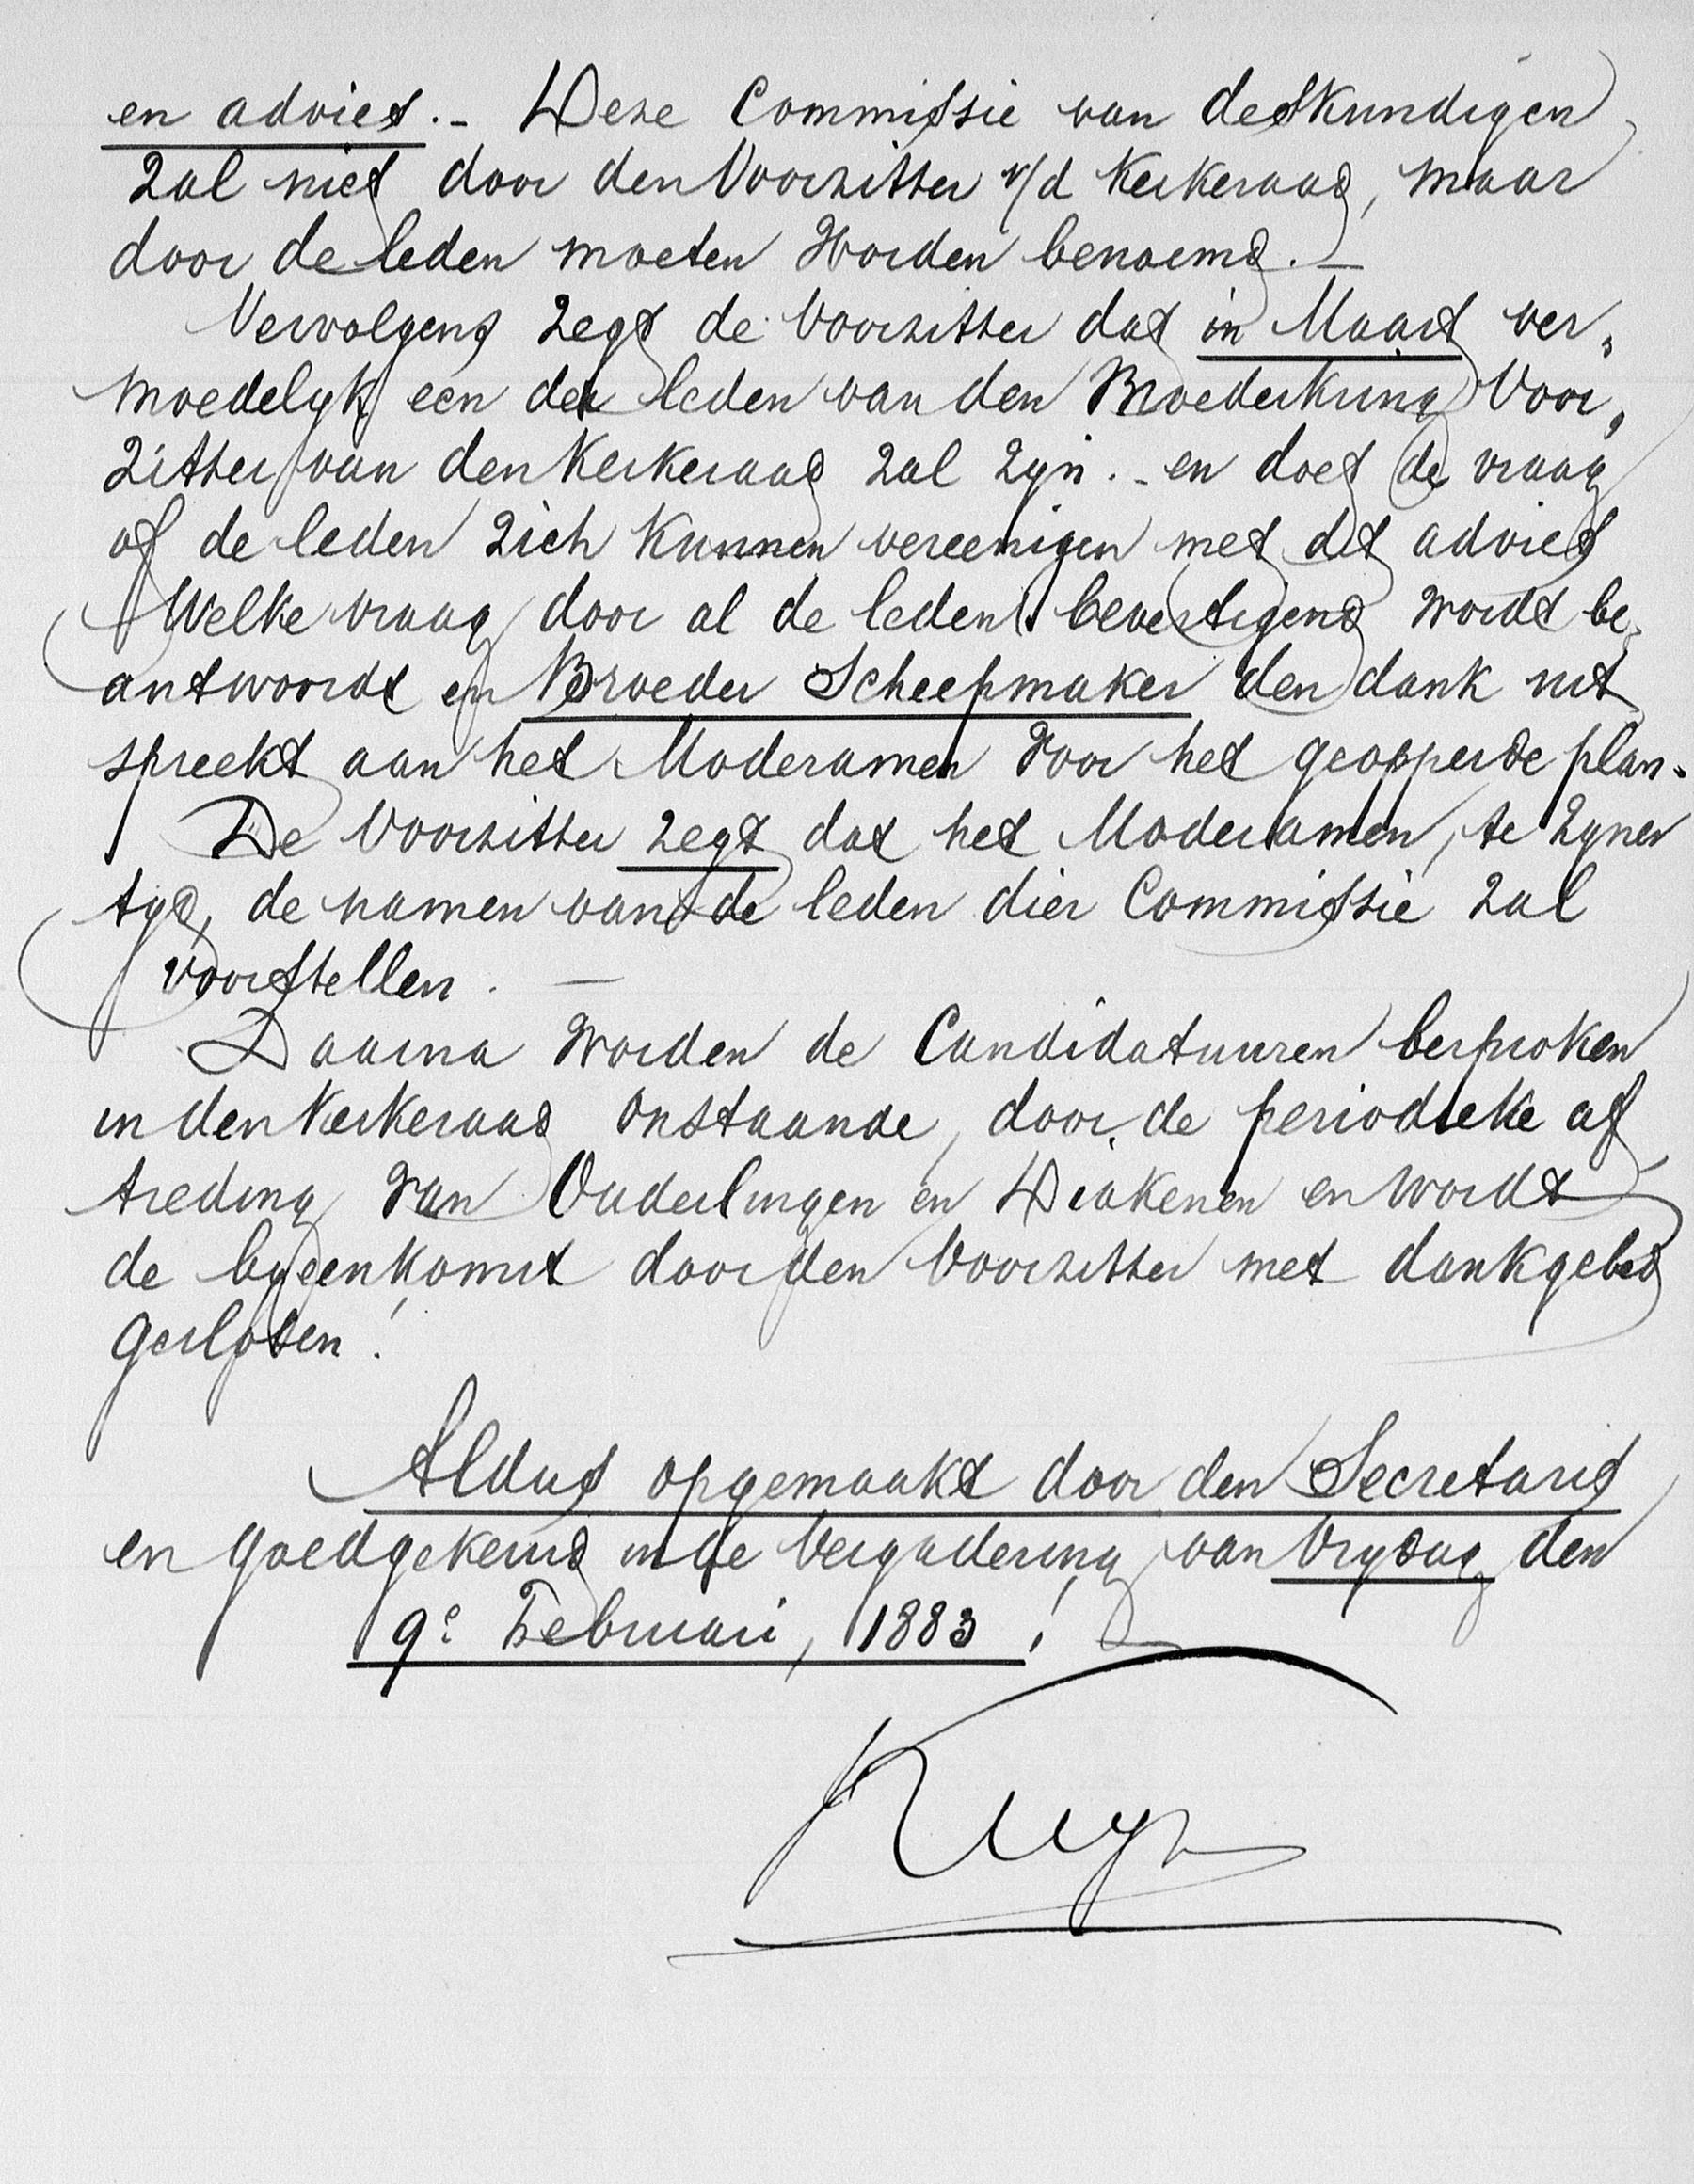 en advies. - Deze Commissie van deskundigen
zal niet door den Voorzitter v/d Kerkeraad, maar
door de leden moeten worden benoemd. —
Vervolgens zegt de Voorzitter dat in Maart ver„
moedelyk een der leden van den Broederkring Voor„
zitter van den Kerkeraad zal zyn. - en doet de vraag
of de leden zich kunnen vereenigen met dit advies
Welke vraag door al de leden bevestigend wordt be„
antwoordt en Broeder Scheepmaker den dank uit
spreekt aan het Moderamen voor het geopperde plan.
De Voorzitter zegt dat het Moderamen, te zyner
tyd, de namen van de leden dier Commissie zal
voorstellen. —
Daarna worden de Candidatuuren besproken
in den Kerkeraad onstaande, door de periodieke af
treding van Ouderlingen en Diakenen en wordt
de byeenkomst door den Voorzitter met dankgebed
gesloten!
Aldus opgemaakt door den Secretaris
en goedgekeurd in de Vergadering van Vrydag den
9e Februari, 1883!
Kuyper